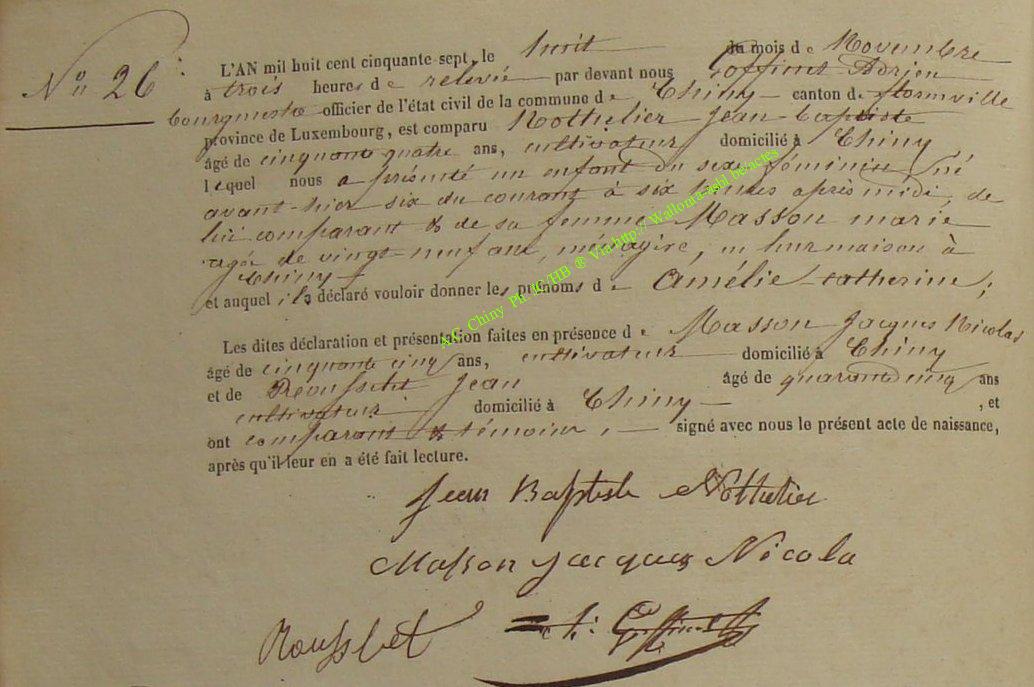 No 26
L'AN mil huit cent cinquante-sept, le huit du mois de Novembre
à trois heures de relevée par devant nous Goffinet Adrien
bourgmestre officier de l'état civil de la commune de Chiny canton de florenville
province de Luxembourg, est comparu Nothulier Jean-baptiste
âgé de cinquante quatre ans, cultivateur domicilié à Chiny
lequel nous a présenté un enfant du sexe féminin né
avant-hier six du courant à six heures après midi, de
lui comparant & de sa femme Masson marie
agée de vingt-neuf ans, ménagère, en leur maison à
Chiny
et auquel il a déclaré vouloir donner les prénoms de Amélie-catherine;
Les dites déclaration et présentation faites en présence de Masson Jacques Nicolas
âgé de cinquante cinq ans, cultivateur domicilié à Chiny
et de Jean âgé de quarante cinq ans
cultivateur domicilié à Chiny , et
ont comparant & témoins, signé avec nous le présent acte de naissance,
après qu'il leur en a été fait lecture.
Jean Baptiste Nothulier
Masson jacques Nicola
A.C. Chiny Ph JC/HB ® Via http:// Wallonia-asbl be/actes